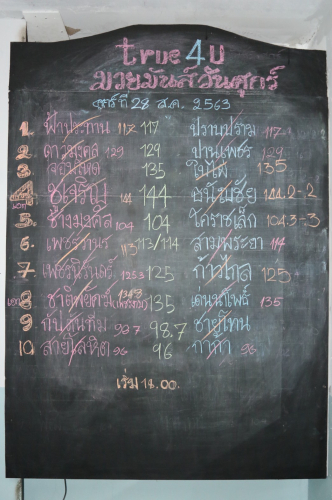 true4U
มวยมันส์วันศุกร์
ศุกร์ที่ 28 ส.ค. 2563
1. ฟ้าประทาน 117 117 ปราบปราม 117
2. ดาวมงคล 129 129 ปานเพชร 129
3. 135 ใบไผ่ 135
4. ชูเจริญ 144 144 ธนัญชัย 144.2-2
5. ช้างมงคล 104 104 โคราชเล็ก 104.3-3
6. 113 113/114 สามพระยา 114
7. เพชรนิรันดร์ 125.3 125 ก้าวไกล 125
8 135 เด่นนำโพธิ์ 135
9 ทับทันทีม 98.7 98.7 ชายโทน
10 สายโลหิต 96 96 กาก้า 96
เริ่ม 18.00.